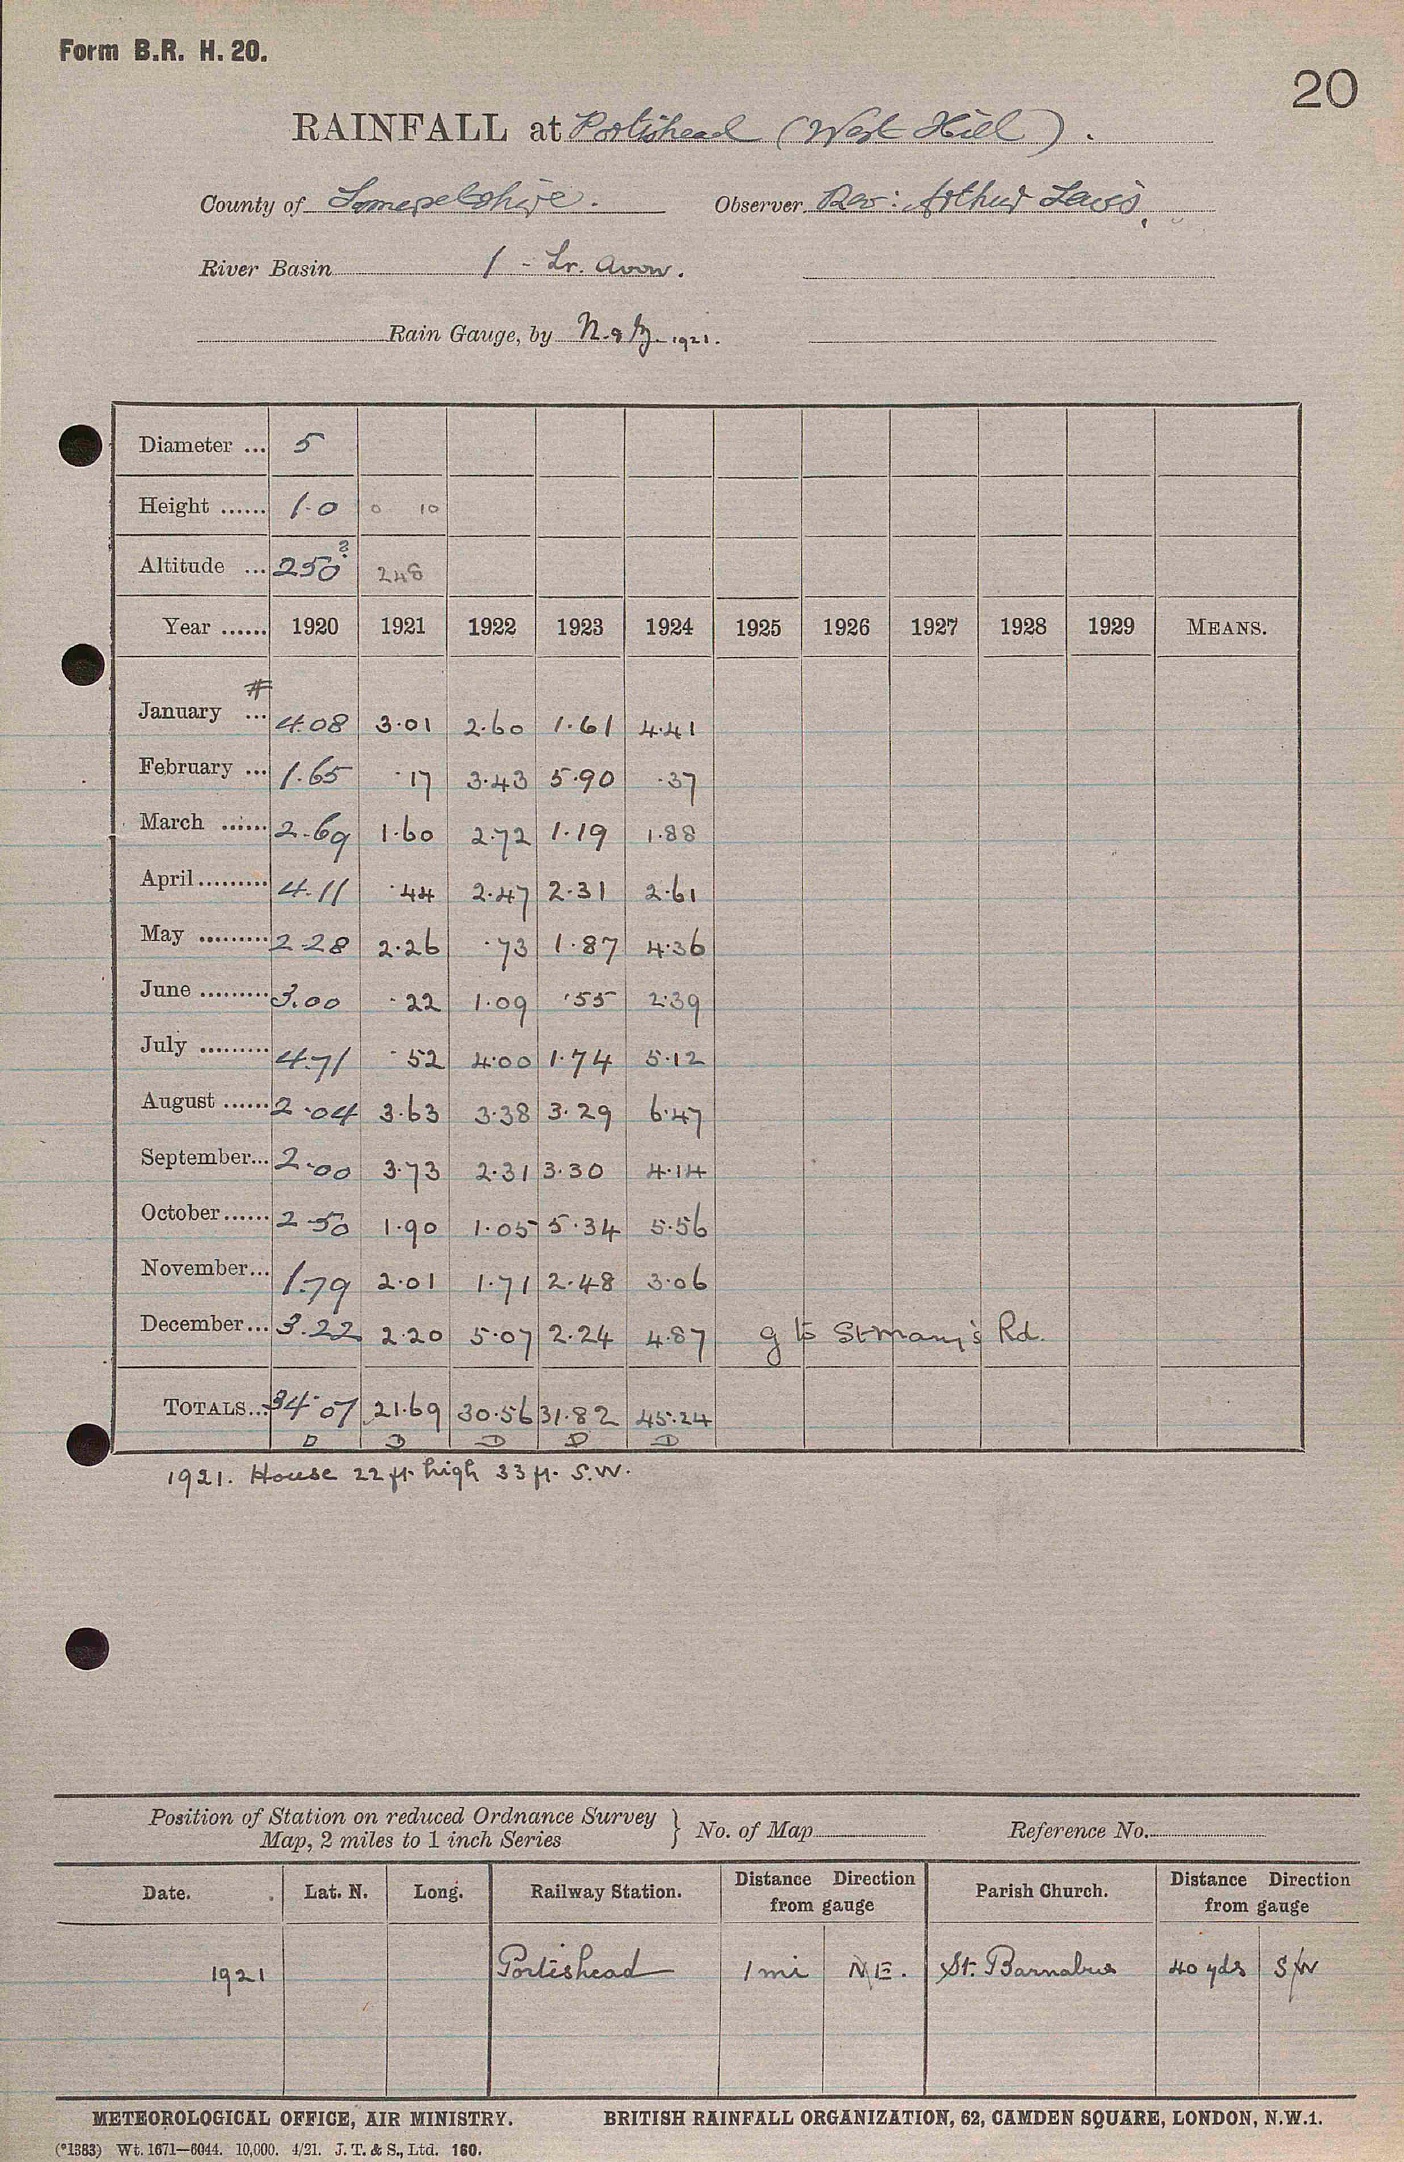 Form B.R. H. 20.
20
RAINFALL at Portishead (West Hill).
County of Somersetshire. Observer Rev: Arthur Lewis
River Basin 1 - Lr. Avon.
Rain Gauge, by N. & Z. 1921.
Diameter ... 5
Height ...... 1.0 0 10
Altitude ... 250? 248
Year ...... 1920 1921 1922 1923 1924 1925 1926 1927 1928 1929 MEANS.
#
January ... 4.08 3.01 2.60 1.61 4.41
February ... 1.65 .17 3.43 5.90 .37
March ...... 2.69 1.60 2.72 1.19 1.88
April......... 4.11 .44 2.47 2.31 2.61
May ......... 2.28 2.26 .73 1.87 4.36
June ......... 3.00 .22 1.09 .55 2.39
July ......... 4.71 .52 4.00 1.74 5.12
August ...... 2.04 3.63 3.38 3.29 6.47
September... 2.00 3.73 2.31 3.30 4.14
October...... 2.50 1.90 1.05 5.34 5.56
November... 1.79 2.01 1.71 2.48 3.06
December... 3.22 2.20 5.07 2.24 4.87 g to St Mary's Rd.
TOTALS... 34.07 21.69 30.56 31.82 45.24
D D D D D
1921. House 22 ft. high 33 ft. S.W.
Position of Station on reduced Ordnance Survey
Map, 2 miles to 1 inch Series } No. of Map Reference No.
Date. Lat. N. Long. Railway Station. Distance Direction from gauge Parish Church. Distance Direction from gauge
1921 Portishead 1 mi N/E. St. Barnabus 40 yds S/W
METEOROLOGICAL OFFICE, AIR MINISTRY. BRITISH RAINFALL ORGANIZATION, 62, CAMDEN SQUARE, LONDON, N.W.1.
(*1383) Wt. 1671—6044. 10,000. 4/21. J. T. & S., Ltd. 160.